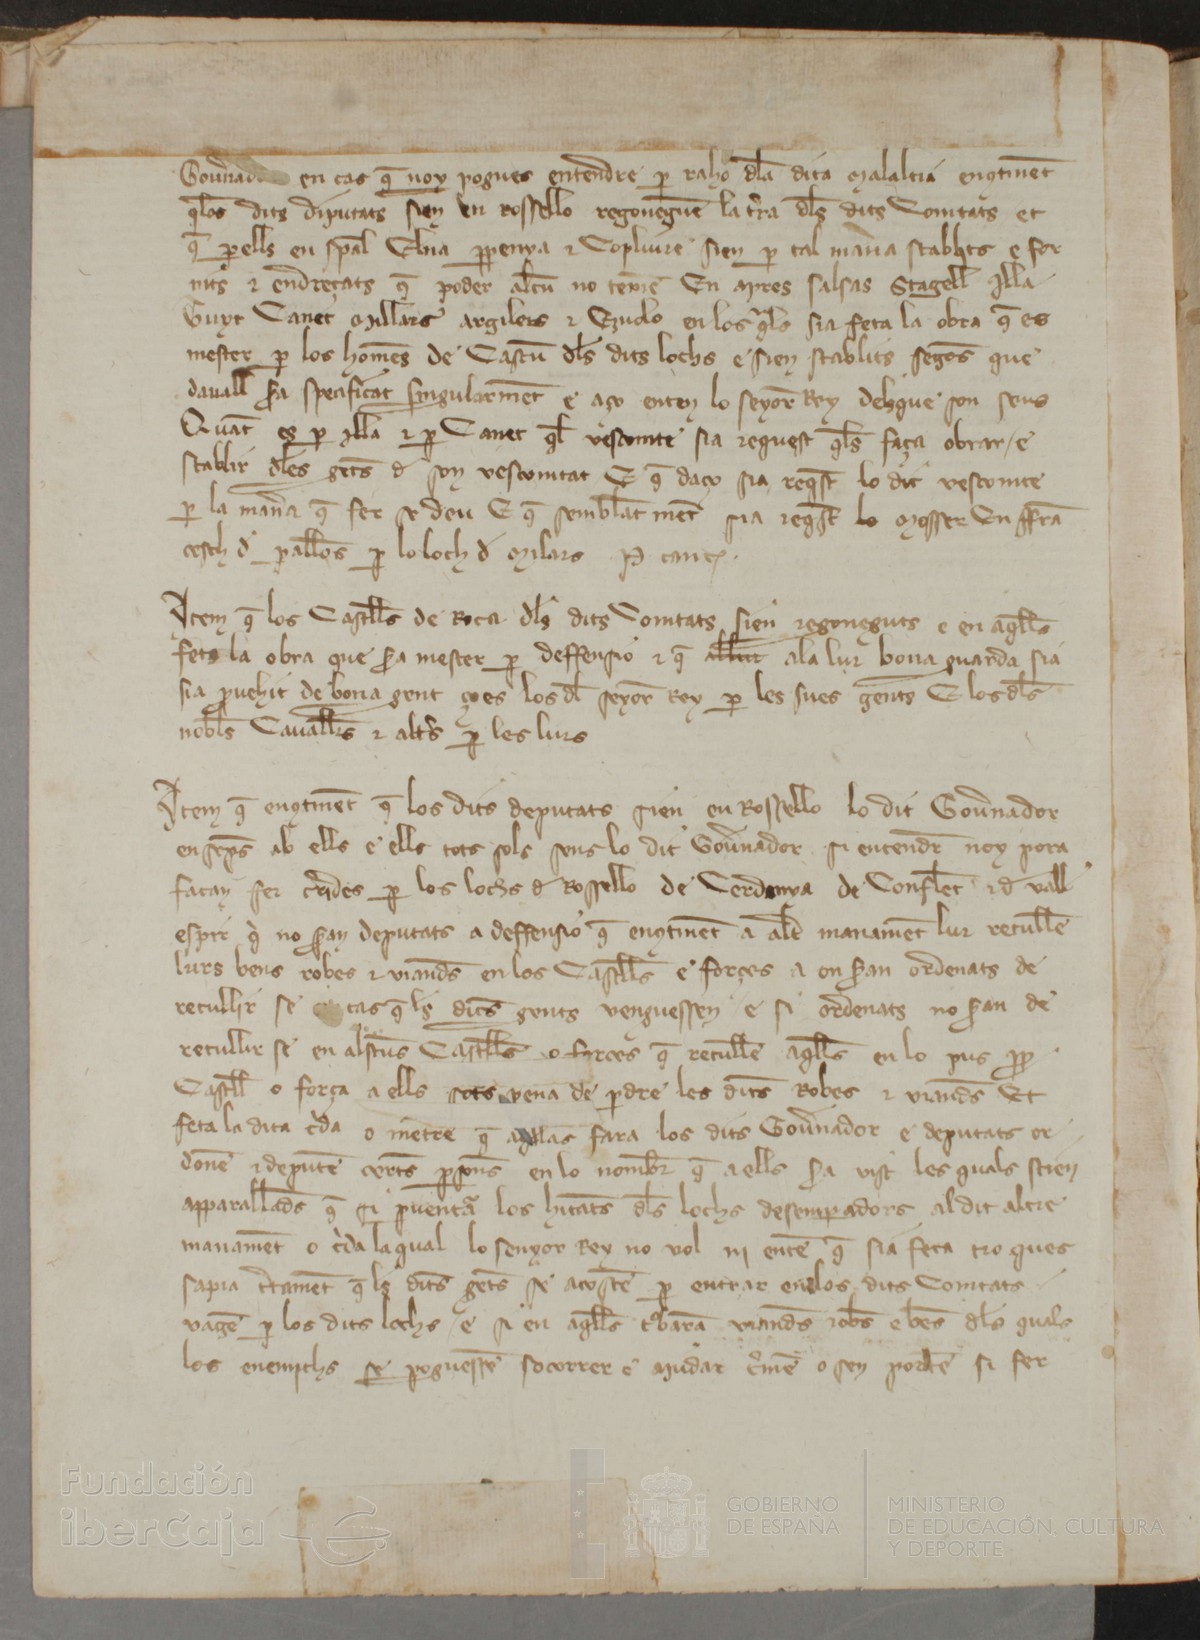 en cas q̄ noy pogues entendre p̄ raho dl̄a dita malaltia enqtinēt
q̄los dits diputats sien en Rossello regoneguē la t̄ra dl̄s dits Comtats et
q̄ p̄ ells en sp̄al Elna p̄penya ⁊ Copliure sien p̄ tal man̄a stablits e for
nits ⁊ endreçats q̄ poder alcū no temē En apres salsas Stagell Illa
Canet Millars argilers ⁊ en los q̄ls sia feta la obra q̄ es
mester p̄ los homēs de Castū dl̄s dits lochs e sien stablits segōs que
davall s̄a specificat singularmēt e aço enten lo seyor Rey dels que son seus
Quāt es p̄ Illa ⁊ p̄ Canet q̄l vescomte sia request q̄ls faça obrar / e
stablir dl̄es gēts d̄ son vescomtat E q̄ daço sia reqst lo dit vescomte
p̄ la man̄a q̄ fer se deu E q̄ semblāt mēt sia reqst lo Mosser En ffrā
cesch d̄ p̄ lo loch d̄ Milars
Item q̄ los Castells de Roca dl̄s dits Comtats sien regoneguts e en aq̄lls
feta la obra que s̄a mester p̄ deffensio ⁊ q̄ ala lur bona guarda sia
sia p̄vehit de bona gent ço es los dl̄ seyor Rey p̄ les sues gents E los dl̄s
nobl̄s Cavallers ⁊ alt̄s p̄ les lurs
Item q̄ enqtinēt q̄ los dits deputats sien en Rossello lo dit Gov̄nador
ensēps ab ells e ells tots sols sens lo dit Gov̄nador si entendr̄ noy pora
façan fer c̄des p̄ los lochs d̄ Rossello de Cerdanya de Conflēt ⁊ d̄ vall
espir q̄ no s̄an deputats a deffensio q̄ enqtinēt a alt̄ manamēt lur recullē
lurs bens robes ⁊ viandēs en los Castells e forçes a on s̄an ordenats de
recullir se cas q̄ ls̄ dites gents venguessen e si ordenats no s̄an de
recullir se en alscūs Castells o forçes q̄ recullē aq̄lls en lo pus
Castell o força a ells sots pena de p̄dre les dites Robes ⁊ viandēs Et
feta la dita c̄da o metre q̄ fara los dits Gov̄nador e deputats or
donē ⁊ deputē certs p̄sons en lo nombr̄ q̄ a ells s̄a vist les quals stien
apparallads q̄ si p̄ventura los hitāts dl̄s lochs al dit altre
manamēt o c̄da la qual lo senyor Rey no vol ni entē q̄ sia feta tro ques
sapia c̄tamēt q̄ ls̄ dites gēts se acostē p̄ entrar en los dits Comtats
vagē p̄ los dits lochs / e si en aq̄lls t̄barā viandēs robēs e bēs dl̄s quals
los enemichs se poguessē socorrer e ajudar o sen portē si fer
Fundación
iberCaja
GOBIERNO
DE ESPAÑA
MINISTERIO
DE EDUCACIÓN, CULTURA
Y DEPORTE